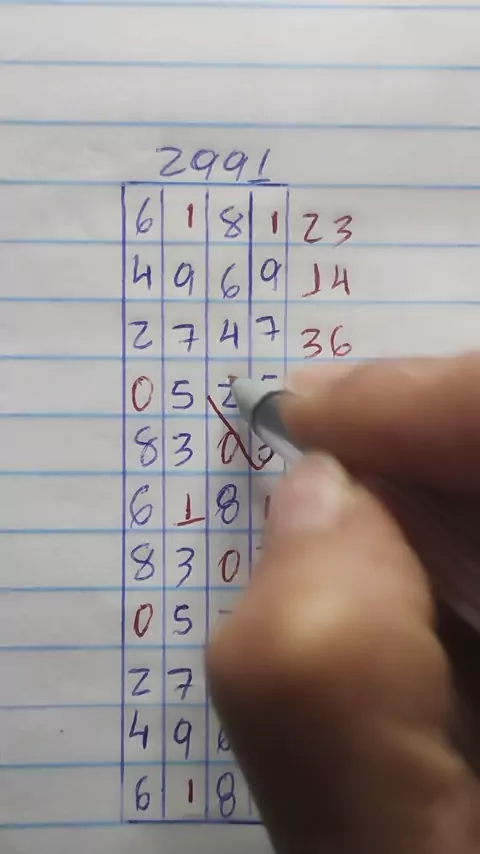 2991
6 1 8 1 23
4 9 6 9 14
2 7 4 7 36
0 5 2
8 3 0
6 1 8
8 3 0
0 5
2 7
4 9
6 1 8